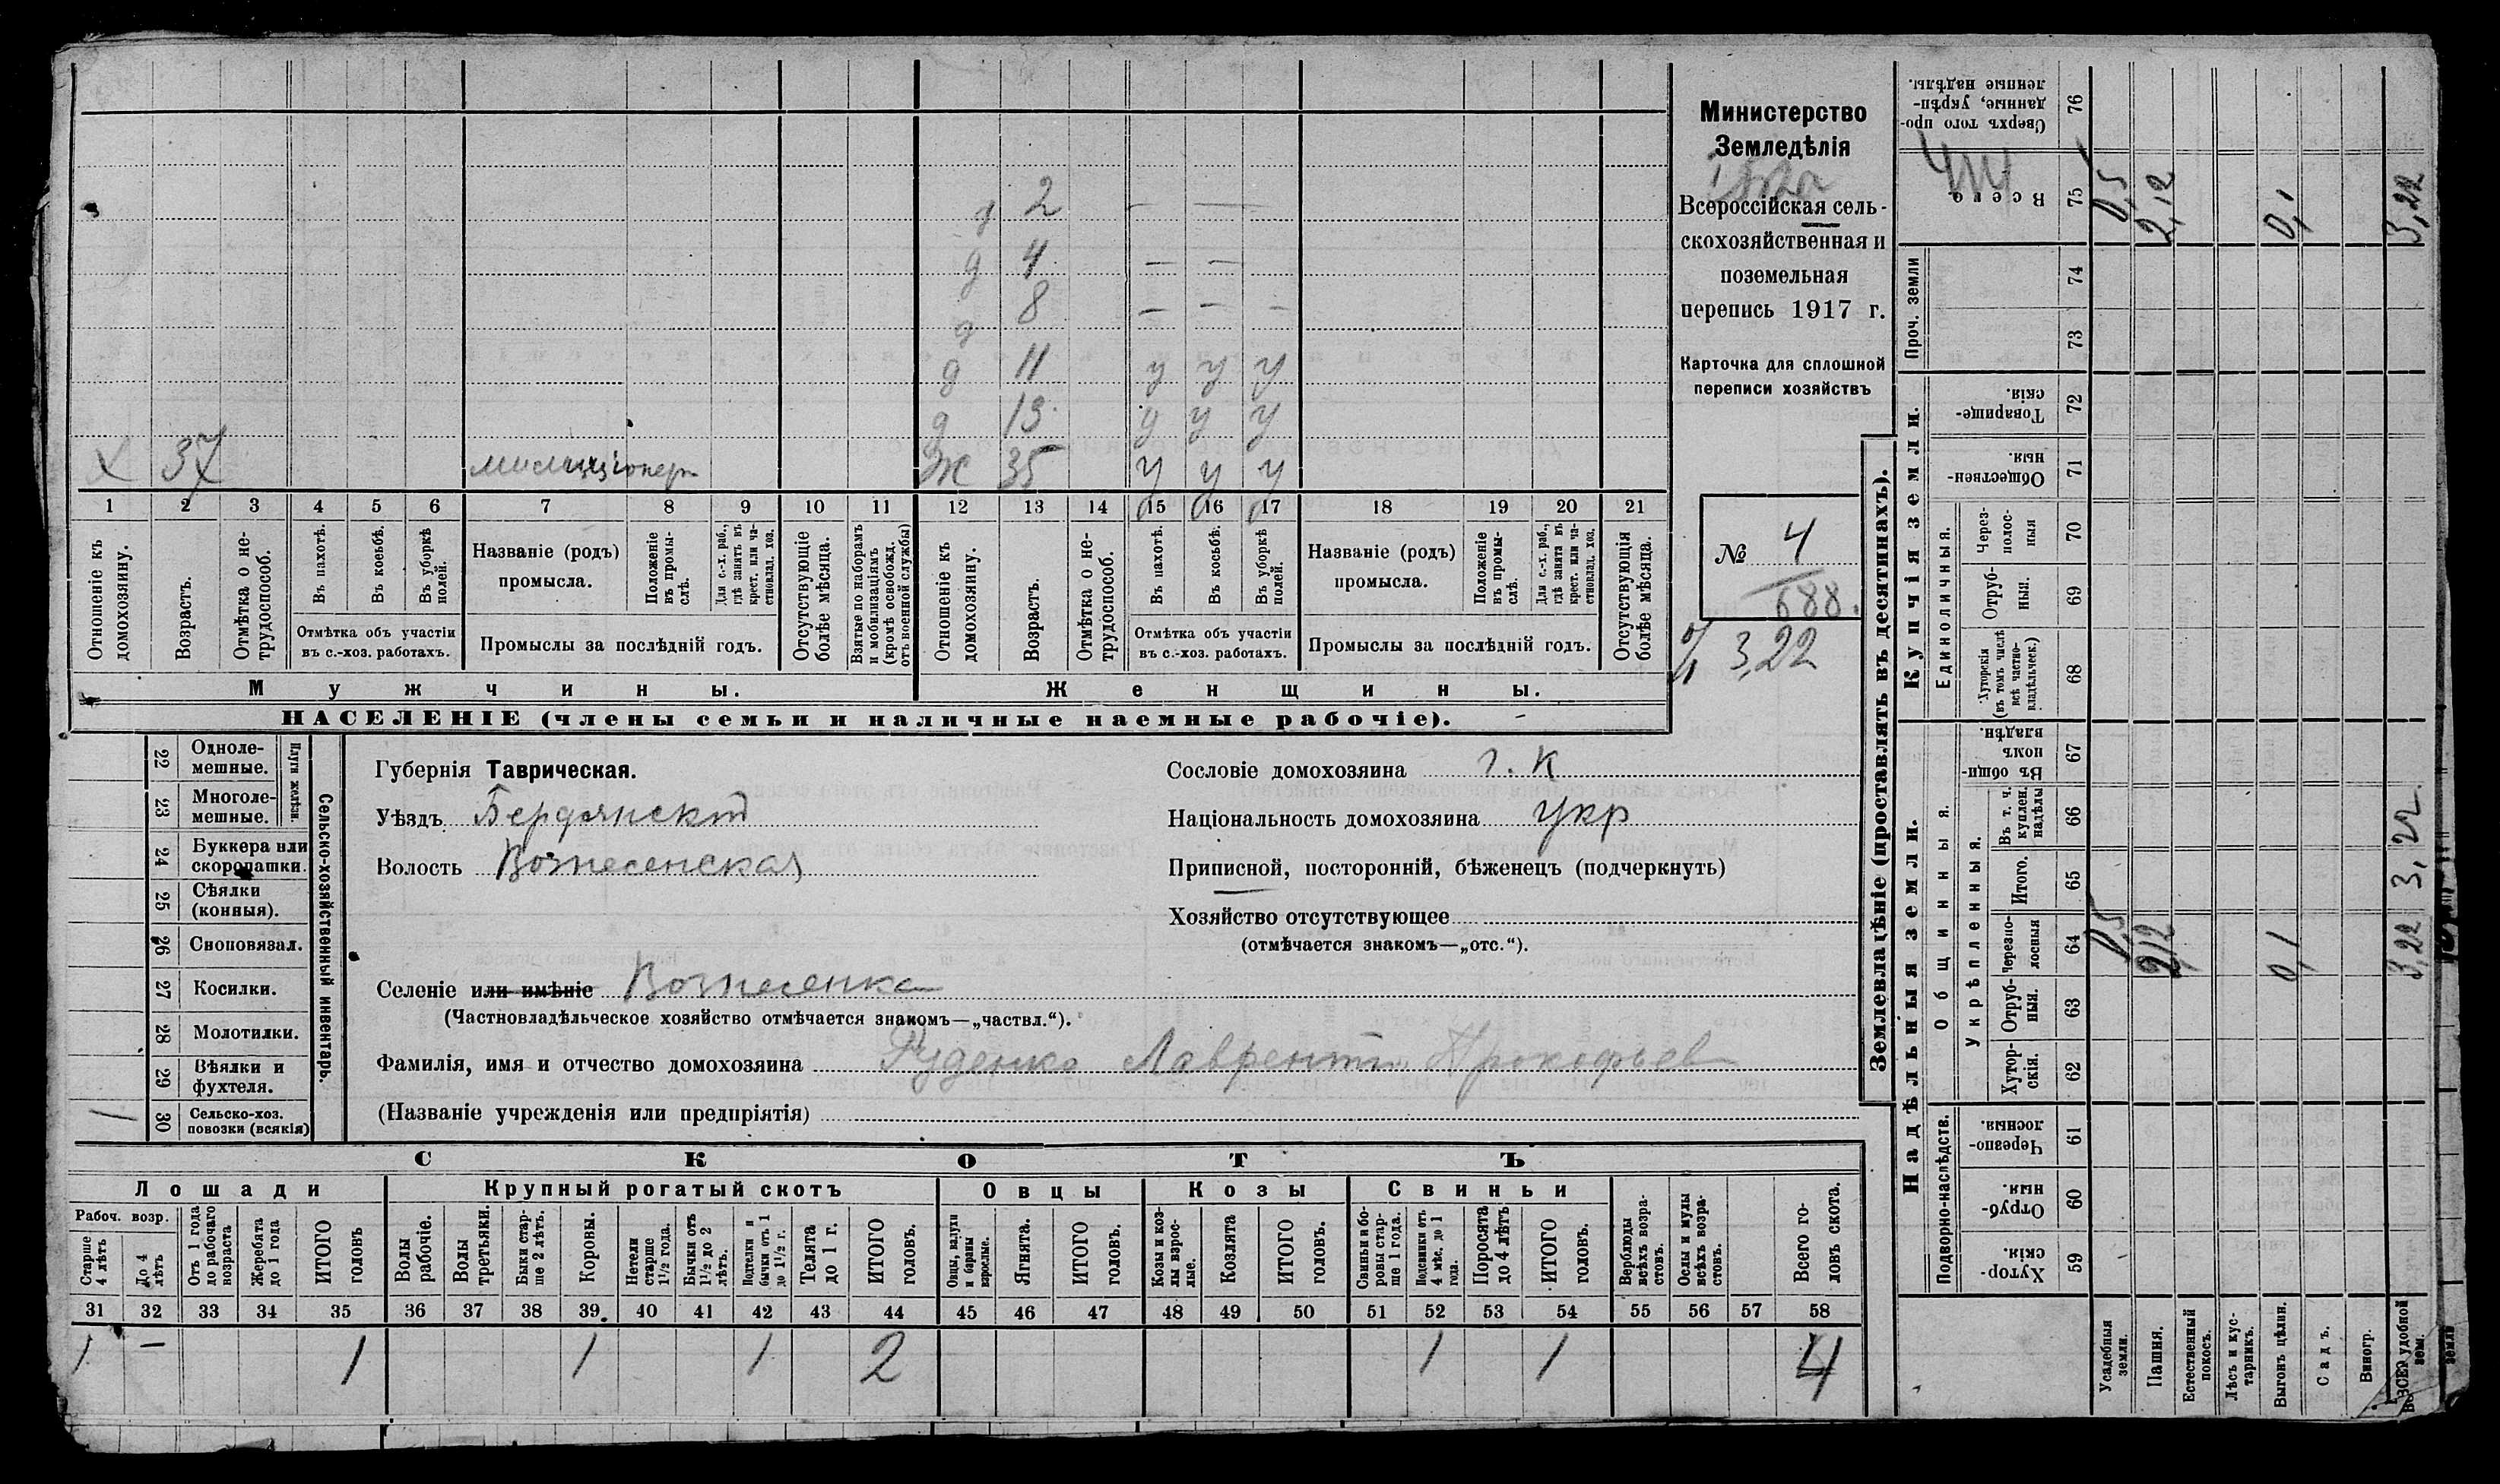 Министерство
Земледѣлія
Всероссійская сель-
скохозяйственная и
поземельная
перепись 1917 г.
Карточка для сплошной
переписи хозяйствъ
№ 4
688.
3,22
д 2 — —
д 4 — —
д 8 — — —
д 11 у у у
д 13 у у у
х 37 милиціонер Ж 35 у у у
1 2 3 4 5 6 7 8 9 10 11 12 13 14 15 16 17 18 19 20 21
Отношеніе къ домохозяину.
Возрастъ.
Отмѣтка о не-трудоспособ.
Въ пахотѣ.
Въ косьбѣ.
Въ уборкѣ полей.
Отмѣтка объ участіи
въ с.-хоз. работахъ.
Названіе (родъ)
промысла.
Положеніе въ промы-слѣ.
Для с.-х. раб., гдѣ занятъ въ крест. или ча-стновлад. хоз.
Промыслы за послѣдній годъ.
Отсутствующіе болѣе мѣсяца.
Взятые по наборамъ и мобилизаціямъ (кромѣ освобожд. отъ военной службы)
Отношеніе къ домохозяину.
Возрастъ.
Отмѣтка о не-трудоспособ.
Въ пахотѣ.
Въ косьбѣ.
Въ уборкѣ полей.
Отмѣтка объ участіи
въ с.-хоз. работахъ.
Названіе (родъ)
промысла.
Положеніе въ промы-слѣ.
Для с.-х. раб., гдѣ занята въ крест. или ча-стновлад. хоз.
Промыслы за послѣдній годъ.
Отсутствующія болѣе мѣсяца.
Мужчины. Женщины.
НАСЕЛЕНІЕ (члены семьи и наличные наемные рабочіе).
Сельско-хозяйственный инвентарь.
Плуги желѣзн.
22 Одноле-мешные.
23 Многоле-мешные.
24 Буккера или скоропашки.
25 Сѣялки (конныя).
26 Сноповязал.
27 Косилки.
28 Молотилки.
29 Вѣялки и фухтеля.
30 Сельско-хоз. повозки (всякія)
Губернія Таврическая.
Уѣздъ Бердянский
Волость Вознесенская
Селеніе или имѣніе Вознесенка
(Частновладѣльческое хозяйство отмѣчается знакомъ—„частвл.“).
Фамилія, имя и отчество домохозяина Руденко Лаврентий Прокофьев
(Названіе учрежденія или предпріятія)
Сословіе домохозяина г. к
Національность домохозяина укр
Приписной, посторонній, бѣженецъ (подчеркнуть)
Хозяйство отсутствующее
(отмѣчается знакомъ—„отс.“).
СКОТЪ
Лошади Крупный рогатый скотъ Овцы Козы Свиньи
Рабоч. возр.
Старше 4 лѣтъ
До 4 лѣтъ
Отъ 1 года до рабочаго возраста
Жеребята до 1 года
ИТОГО головъ
Волы рабочіе.
Волы третьяки.
Быки стар-ше 2 лѣтъ.
Коровы.
Нетели старше 1½ года.
Бычки отъ 1½ до 2 лѣтъ.
Подтелки и бычки отъ 1 до 1½ г.
Телята до 1 г.
ИТОГО головъ.
Овцы, валухи и бараны взрослые.
Ягнята.
ИТОГО головъ.
Козы и коз-лы взрос-лые.
Козлята
ИТОГО головъ.
Свиньи и бо-ровы стар-ше 1 года.
Подсвинки отъ 4 мѣс. до 1 года.
Поросята до 4 лѣтъ
ИТОГО головъ.
Верблюды всѣхъ возра-стовъ.
Ослы и мулы всѣхъ возра-стовъ.
Всего го-ловъ скота.
31 32 33 34 35 36 37 38 39 40 41 42 43 44 45 46 47 48 49 50 51 52 53 54 55 56 57 58
1 — 1 1 1 2 1 1 4
Землевладѣніе (проставлять въ десятинахъ).
Надѣльныя земли. Купчія земли.
Подворно-наслѣдств.
Общинныя.
Укрѣпленныя.
Единоличныя.
Проч. земли
59 Хутор-скія.
60 Отруб-ныя.
61 Черезпо-лосныя.
62 Хутор-скія.
63 Отруб-ныя.
64 Черезпо-лосныя
65 Итого.
66 Въ т. ч. куплен. надѣлы
67 Въ общи-номъ владѣн.
68 Хуторскія (въ томъ числѣ всѣ частно-владѣльческ.)
69 Отруб-ныя.
70 Через-полос-ныя
71 Обществен-ныя.
72 Товарище-скія.
73
74
75 Всего
76 Сверхъ того про-данные, укрѣп-ленные надѣлы.
Усадебныя земли.
Пашня.
Естественный покосъ.
Лѣсъ и кус-тарникъ.
Выгонъ цѣлин.
Садъ.
Виногр.
ВСЕГО удобной зем.
0,5 2,12 0,1 3,22 3,22
0,5 2,12 0,1 3,22